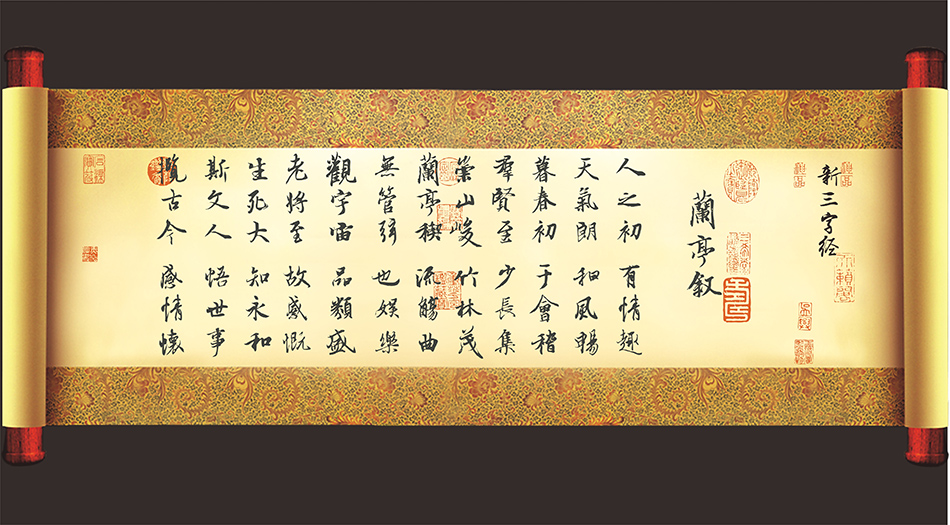 新三字经
蘭亭叙
人之初 有情趣
天氣朗 和風暢
暮春初 于會稽
羣賢至 少長集
崇山峻 竹林茂
蘭亭禊 流觴曲
無管弦 也娱樂
觀宇宙 品類盛
老將至 故感慨
生死大 知永和
斯文人 悟世事
攬古今 感情懷